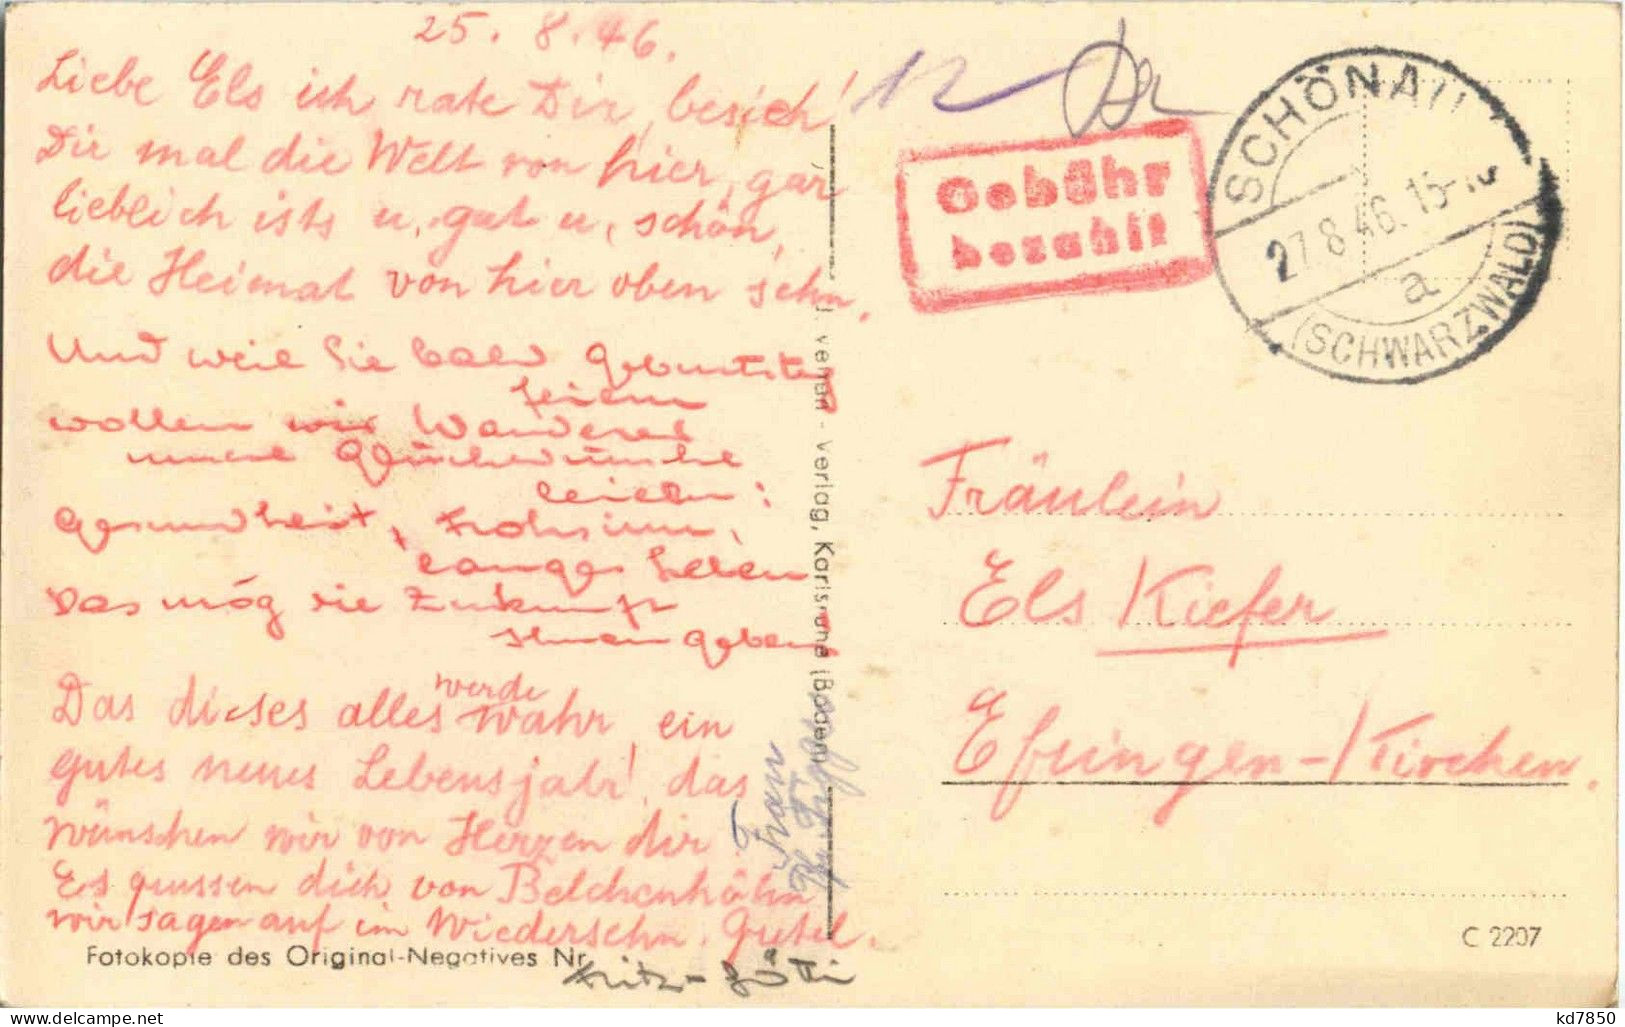 25.8.46.
Liebe Els ich rate Dir, besieh!
Dir mal die Welt von hier, gar
lieblich ists u, gut u, schön,
die Heimat von hier oben sehn.
Und weil Sie bald Geburtstag
feiern
wollen wir Wanderer
unsere Glückwünsche
leihen:
Gesundheit, Frohsinn,
langes Leben
Das mög die Zukunft
Ihnen geben!
Das dieses alles werde wahr, ein
gutes neues Lebensjahr! das
wünschen wir von Herzen dir
Es grussen dich von Belchenhöhn
wir sagen auf im Wiedersehn. Gretel.
Fotokopie des Original-Negatives Nr.
Fritz-
Frau
Verlag, Karlsruhe (Baden)
12
Gebühr
bezahlt
SCHÖNAU
27.8.46.15-
a
(SCHWARZWALD)
Fräulein
Els Kiefer
Efringen-Kirchen.
C 2207
kd7850